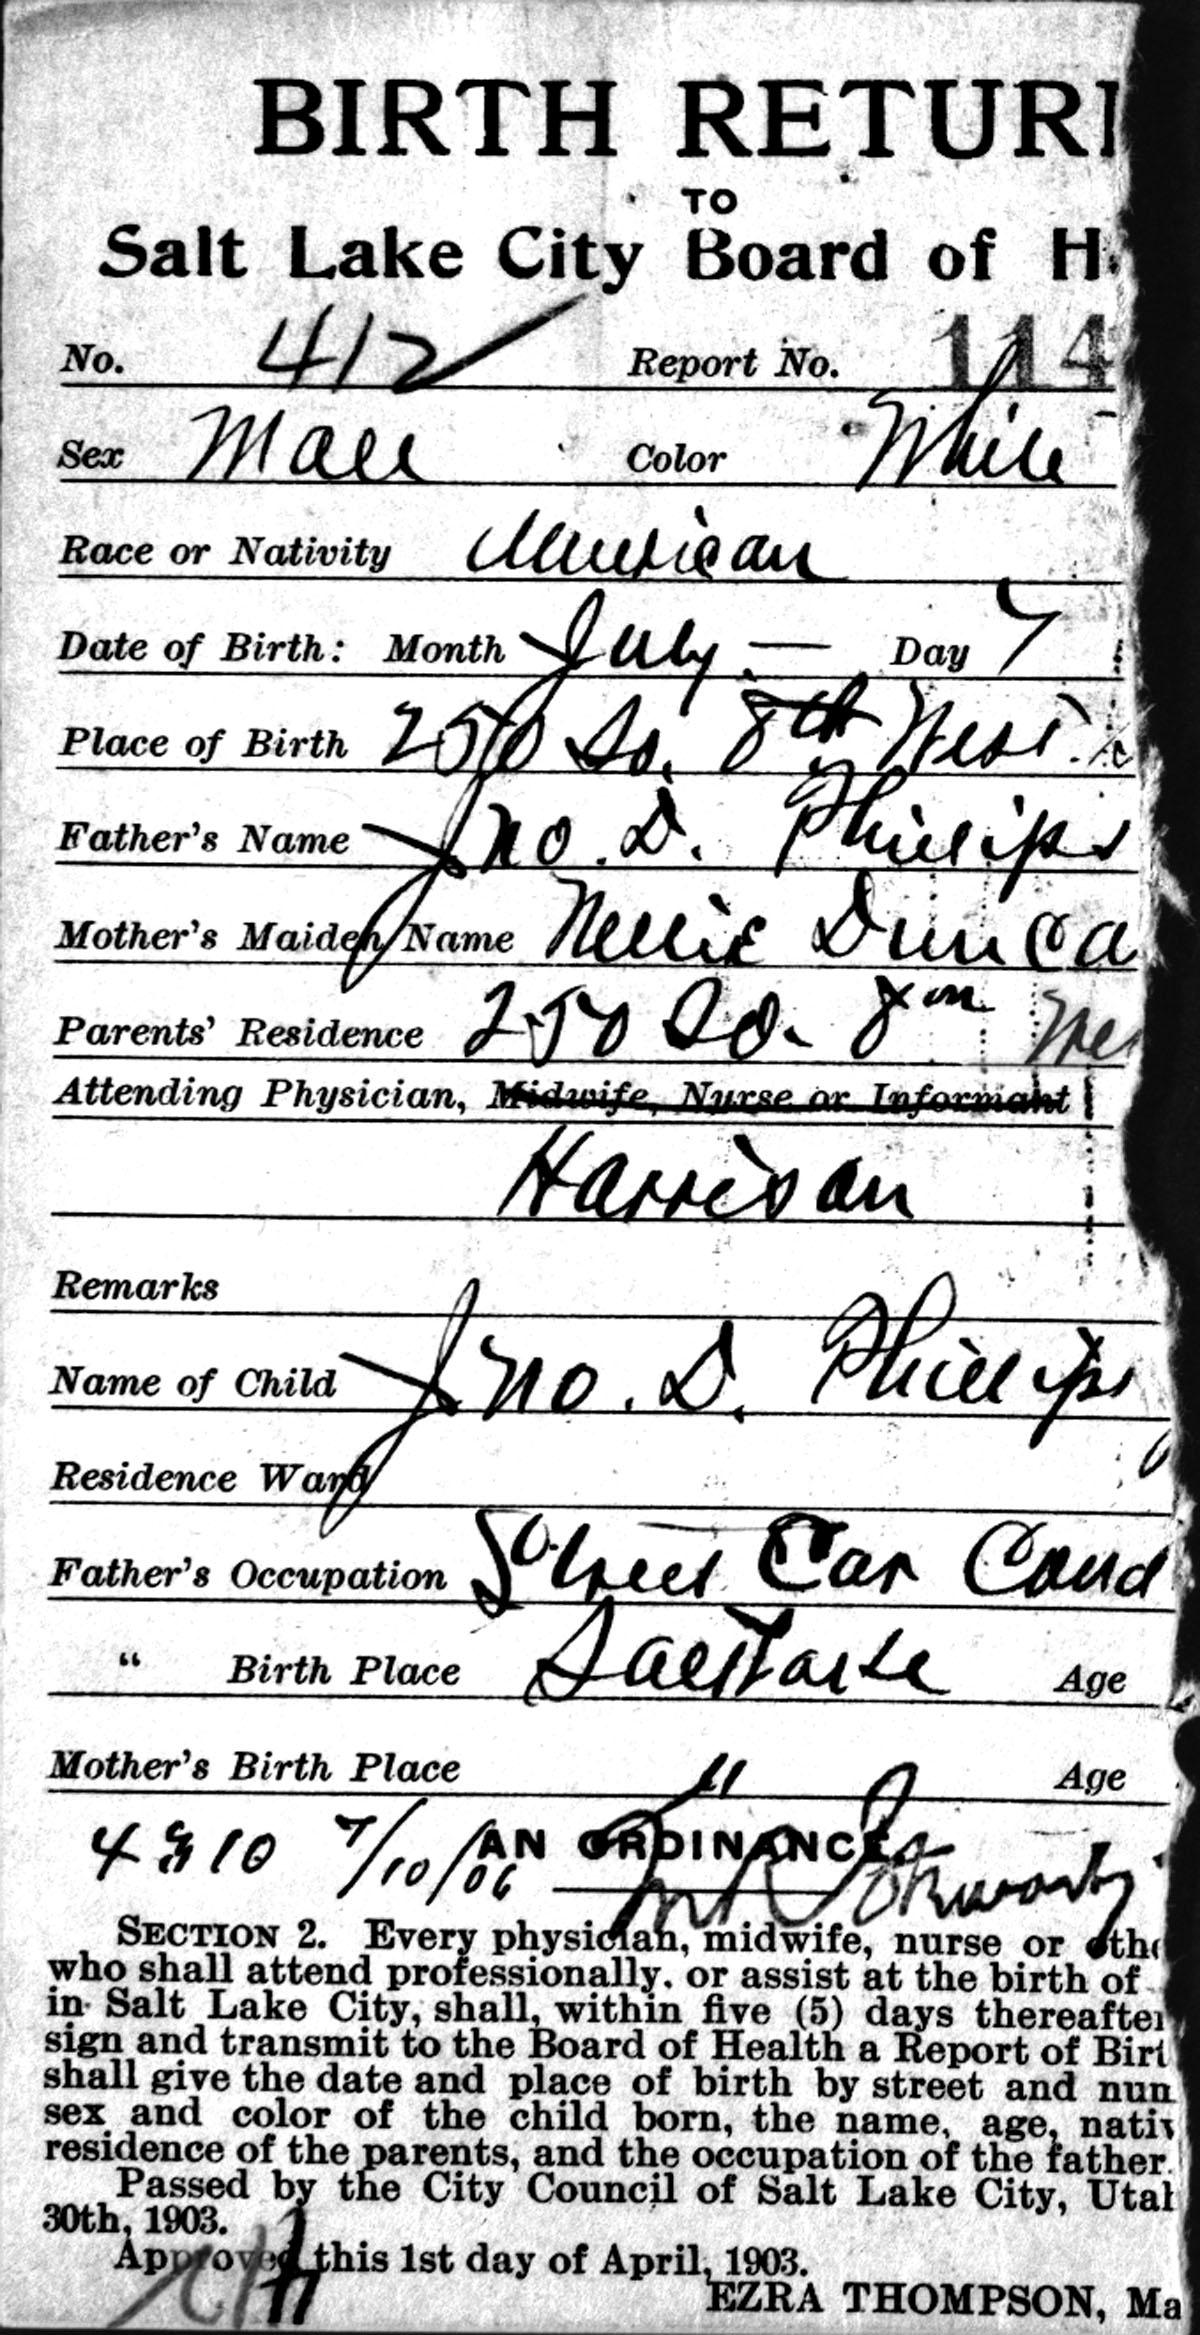 BIRTH RETUR
TO
Salt Lake City Board of H
No. 412 Report No. 114
Sex Male Color White
Race or Nativity American
Date of Birth: Month July — Day 7
Place of Birth 250 So. 8th West
Father's Name Jno. D. Phillips
Mother's Maiden Name Nellie Dunca
Parents' Residence 250 So. 8th We
Attending Physician, Midwife, Nurse or Informant
Harrison
Remarks
Name of Child Jno. D. Phillips
Residence Ward
Father's Occupation Street Car Cond
" Birth Place Salt Lake Age
Mother's Birth Place " Age
7/10/06 AN ORDINANCE
SECTION 2. Every physician, midwife, nurse or oth
who shall attend professionally, or assist at the birth of
in Salt Lake City, shall, within five (5) days thereafter
sign and transmit to the Board of Health a Report of Birt
shall give the date and place of birth by street and num
sex and color of the child born, the name, age, nativ
residence of the parents, and the occupation of the father.
Passed by the City Council of Salt Lake City, Utah
30th, 1903.
Approved this 1st day of April, 1903.
EZRA THOMPSON, Ma